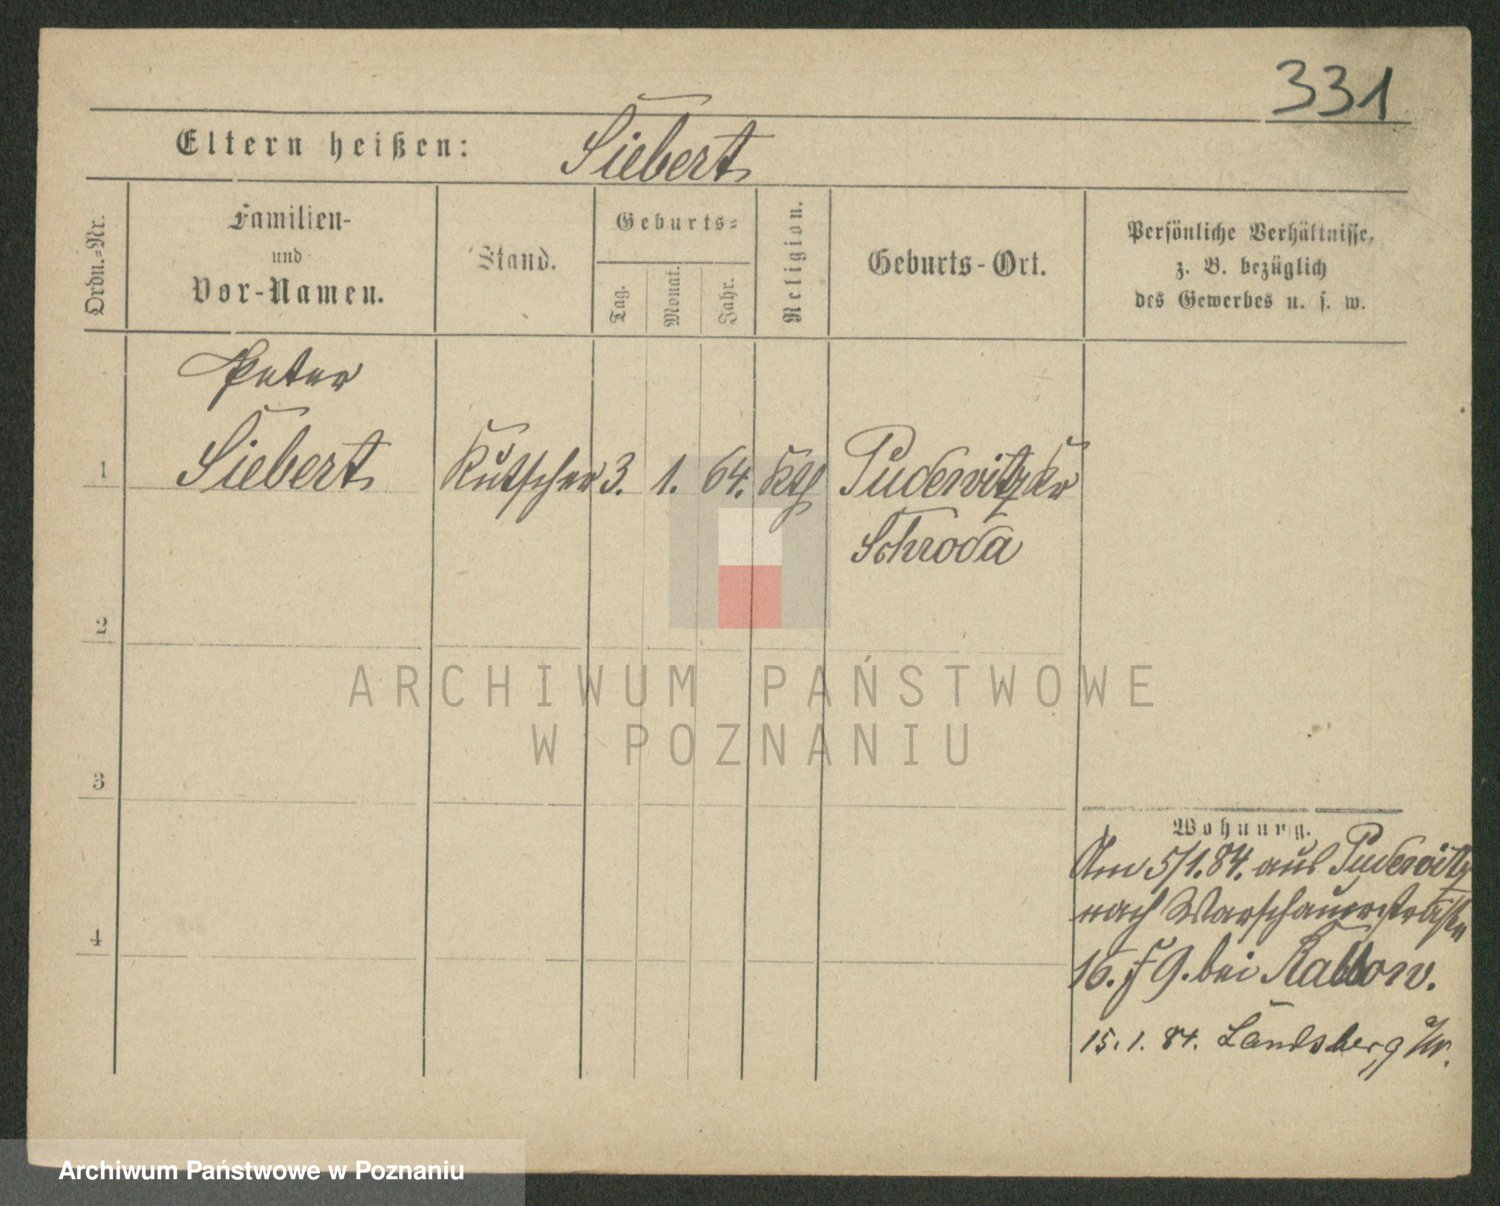 331
Eltern heißen: Siebert
Ordn.-Nr.
Familien-
und
Vor-Namen.
Stand.
Geburts-
Tag.
Monat.
Jahr.
Religion.
Geburts-Ort.
Persönliche Verhältnisse,
z. B. bezüglich
des Gewerbes u. s. w.
Peter
1 Siebert Kutscher 3. 1. 64. Kth Pudewitz Kr
Schroda
2
3
4
Wohnung.
Am 5/1.84. aus Pudewitz
nach Warschauerstraße
16. bei Rabbow.
15.1.84. Landsberg a/W.
ARCHIWUM PAŃSTWOWE
W POZNANIU
Archiwum Państwowe w Poznaniu